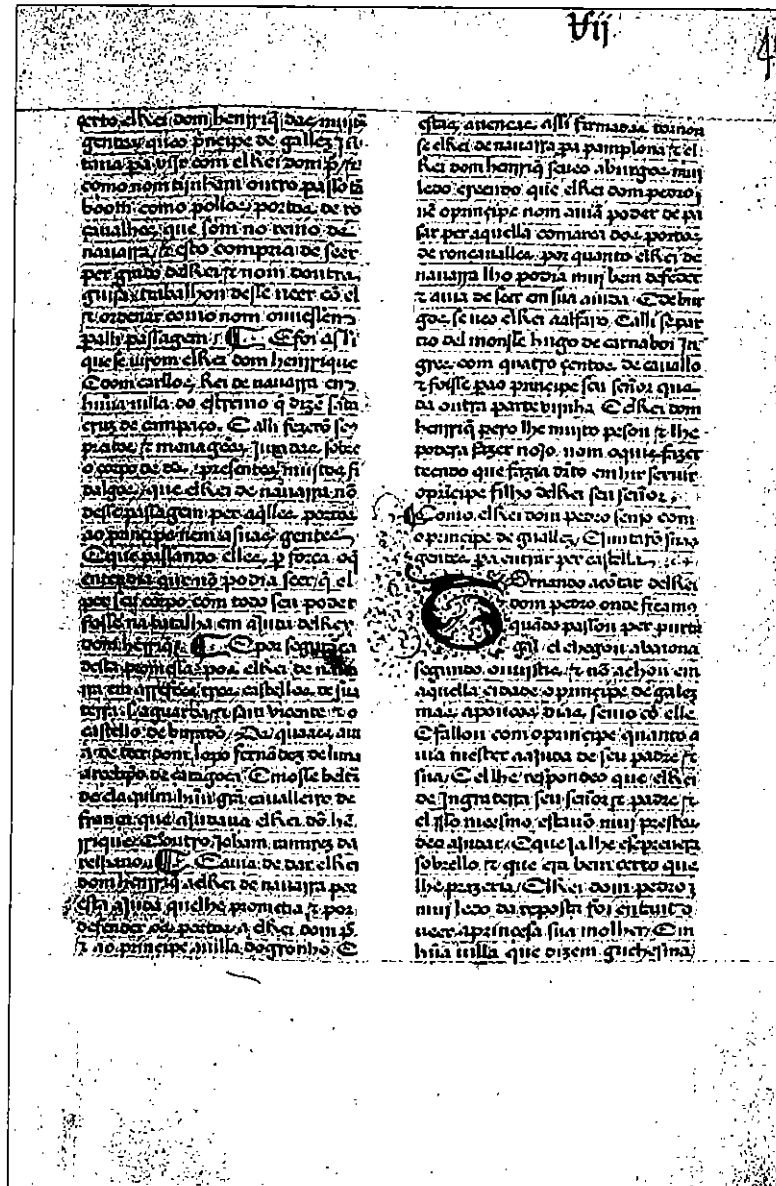 Vij
4
certo, elRei dom henrriq̃ das muitas
gentes, que o p̃ncipe de gallez Ju
taua pa vĩjr com elRei dom P.º, ⁊
como nom tijnham outro passo tã
boom como pollos portos de ro
çaualhes, que som no reino de
nauarra, ⁊ esto compria de seer
per grado delRei ⁊ nom doutra
guisa, trabalhou desse ueer cõ el
⁊ ordenar como nom ouuessem
passagem. E foi assi
que se uirom elRei dom henrrique
E dom carllos, Rei de nauarra em
hũua uilla do estremo q̃ dizẽ sãta
cruz de campaço. E alli fezerõ seus
preitos, ⁊ menageẽs, Juradas sobre
o corpo de ds̃, presentes muitos fi
dalgos, que elRei de nauarra nõ
desse passagem per aq̃lles portos
ao principe nem a suas gentes
E que passando elles, p̃ força o q̃
entendia que nõ podia seer, q̃ el
per seu corpo com todo seu poder
fosse na batalha em ajuda delRey
dom henrriq̃. E por segurãça
desta promessa pos elRei de naua
rra em arrefeẽs tres castellos de sua
terra, laguarda, ⁊ sam vicente ⁊ o
castello de buradõ. Dos quaaes aui
ã de teer dom lopo fernãdez de luna
arcebp̃o de caragoça. E mosse beltrã
de claquim, hũu grã caualleiro de
frança que ajudaua elRei dõ hẽ
rrique. E outro Joham ramirez da
rellano. E auia de dar elRei
dom henrriq̃ a elRei de nauarra por
esta ajuda que lhe prometia, ⁊ por
defender os portos, a elRei dom P.º
⁊ ao principe, a uilla do gronho. E
estas auenças assi firmadas tornou
se elRei de nauarra pa pamplona ⁊ el
Rei dom henrriq̃ se ueo a burgos mui
ledo creendo que elRei dom pedro,
nẽ o principe nom auiã poder de pa
sar per aquella comarca dos portos
de roncaualles, por quanto elRei de
nauarra lho podia mui bem defẽder
⁊ auia de seer em sua aiuda. E de bur
gos se ueo elRei a alfaro. E alli se par
tio del monsse hugo de carnaboi In
gres com quatro çentos de cauallo
⁊ foisse pao principe seu señor que
da outra parte vijnha. E elRei dom
henrriq̃ pero lhe muito pesou ⁊ lhe
podera fazer nojo, nom o quis fazer
teendo que fazia dr̃to em hir seruir
o principe filho delRei seu señor.
Como elRei dom pedro se ujo com
o principe de guallez, E juntarõ suas
gentes pa entrar per castella.
Tornando a cõtar delRei
dom pedro onde ficamos
quãdo passou per purtu
gal, el chegou a baiona
segundo ouuistes, ⁊ nõ achou em
aquella cidade o principe de galez
mas a poucos dias, se uio cõ elle.
E fallou com o principe quanto a
uia mester a ajuda de seu padre ⁊
sua. E el lhe respondeo que elRei
de Ingraterra seu señor ⁊ padre ⁊
el Jsso meesmo, estauõ mui prestes
de o ajudar. E que ja lhe escpreuera
sobrello ⁊ que era bem certo que
lhe prazeria. ElRei dom pedro
mui ledo da reposta foi entanto
ueer a princesa sua molher. Em
hũa uilla que dizem guchesma